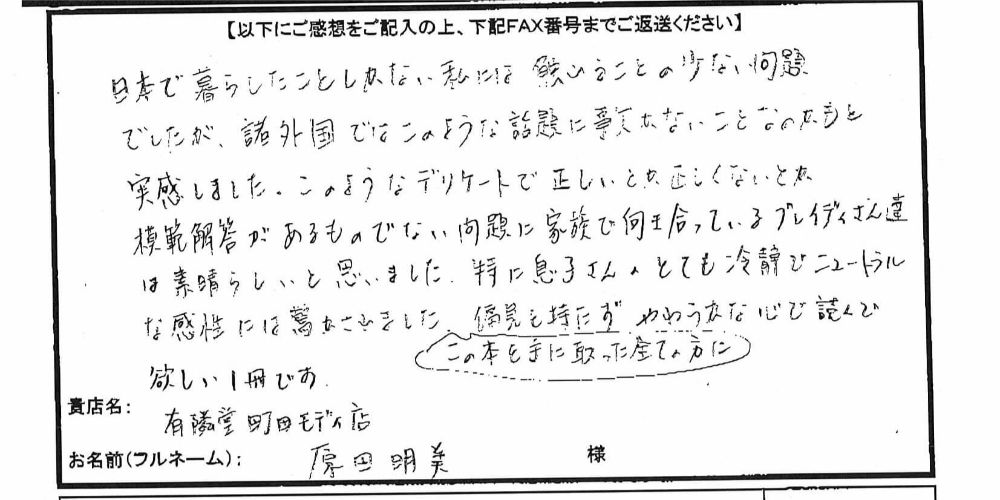 【以下にご感想をご記入の上、下記FAX番号までご返送ください】
日本で暮らしたことしかない私には触れることの少ない問題
でしたが、諸外国ではこのような話題に事欠かないことなのかもと
実感しました。このようなデリケートで正しいとか正しくないとか
模範解答があるものでない問題に家族で向き合っているブレイディさん達
は素晴らしいと思いました。特に息子さんのとても冷静でニュートラル
な感性には驚かされました。偏見も持たず やわらかな心で読んで
この本を手に取った全ての方に
欲しい1冊です。
貴店名： 有隣堂町田モディ店
お名前(フルネーム)： 原田明美 様